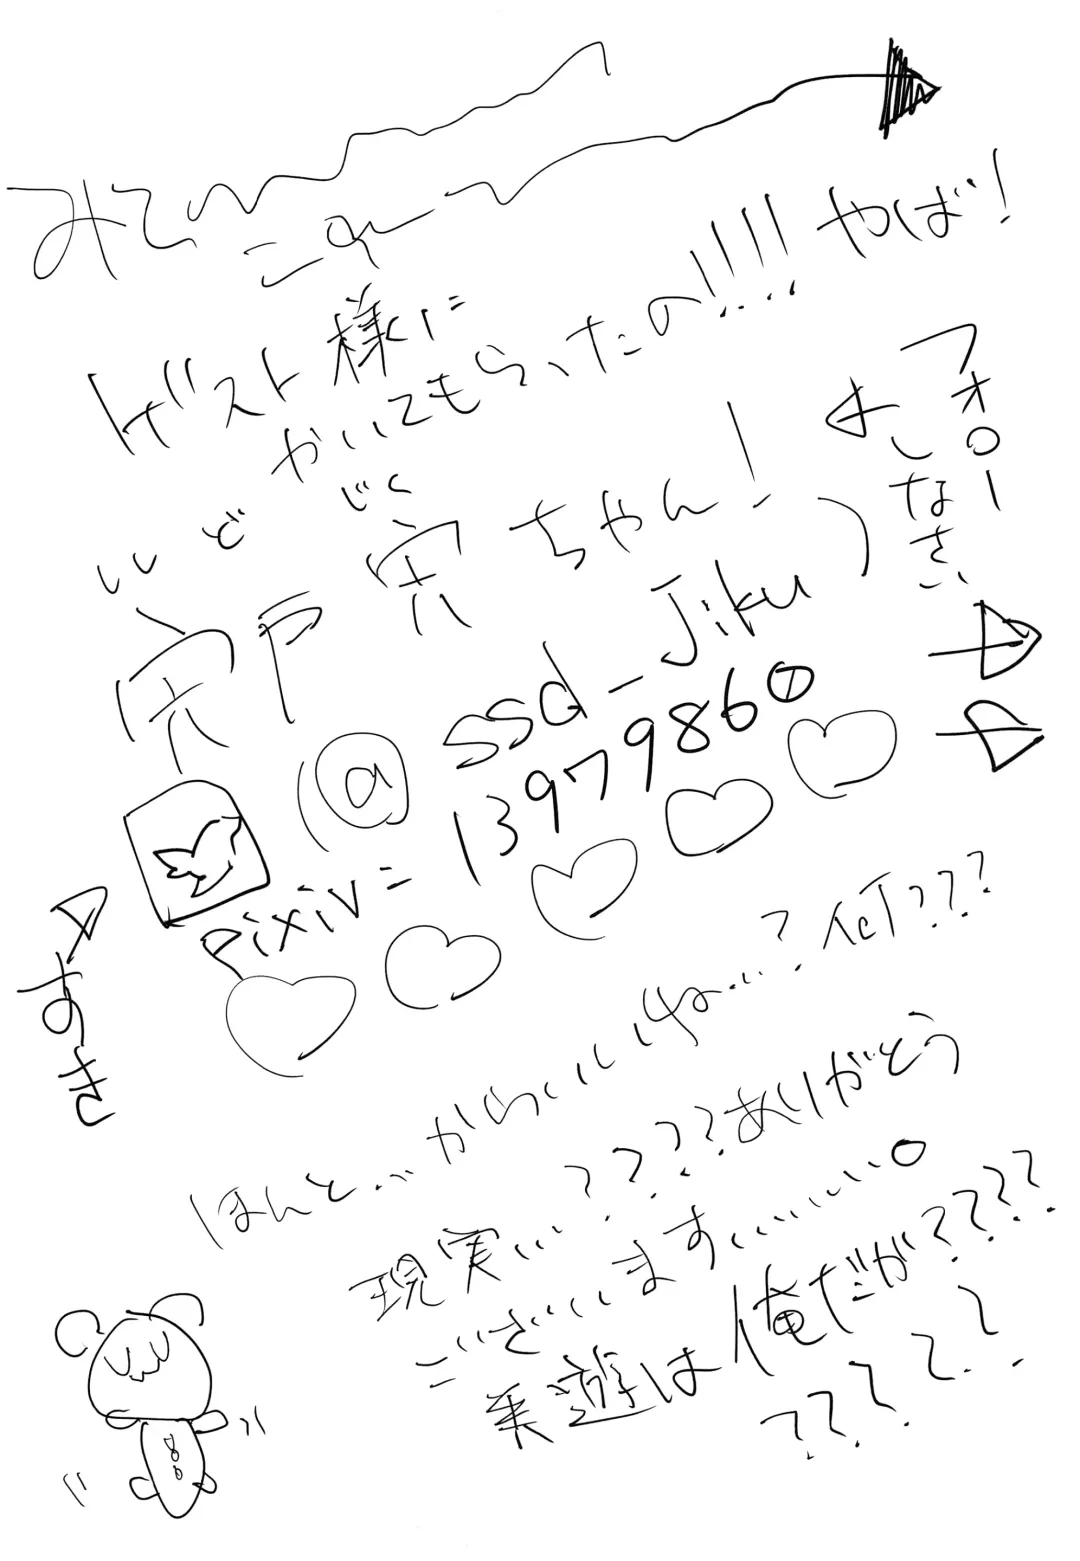 みて
これ
ゲスト様に
かいてもらったの!!!! やば!
フォローしなさい
ししど じく
宍戸 宍ちゃん!
(@ssd_Jiku)
pixiv=13979860
ほんと…からいいね…?何???
現実…????ありがとう
ございます…。
俺だが????
?????